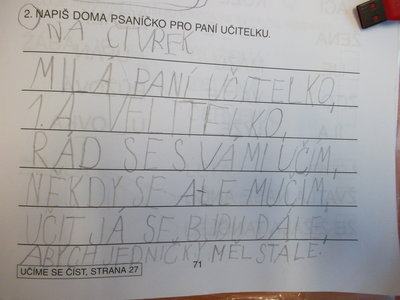 2. NAPIŠ DOMA PSANÍČKO PRO PANÍ UČITELKU.
NA ČTVREK
MILÁ PANÍ UČITELKO,
1.A VELITELKO,
RÁD SE S VÁMI UČÍM,
NĚKDY SE ALE MUČÍM,
UČIT JÁ SE BUDU DÁLE,
ABYCH JEDNIČKY MĚL STÁLE.
71
UČÍME SE ČÍST, STRANA 27